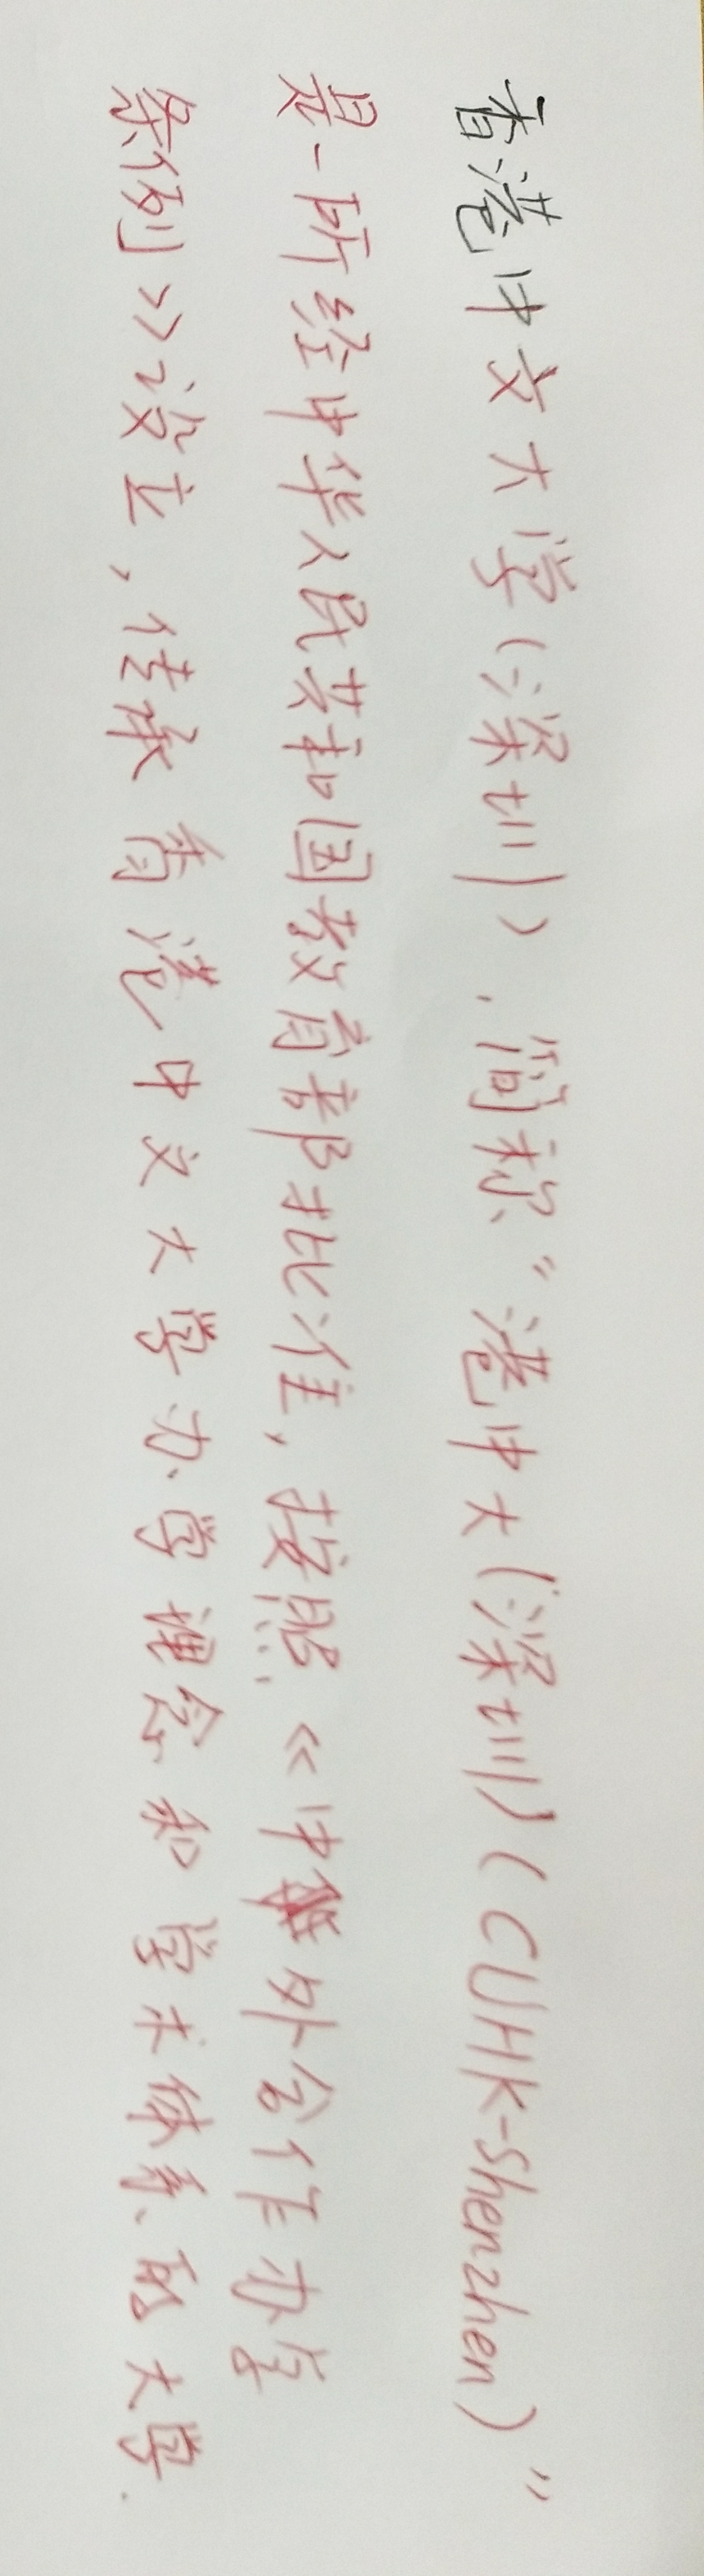 香港中文大学(深圳),简称“港中大(深圳)(CUHK-Shenzhen)”
是一所经中华人民共和国教育部批准,按照《中外合作办学
条例》设立,传承香港中文大学办学理念和学术体系的大学.